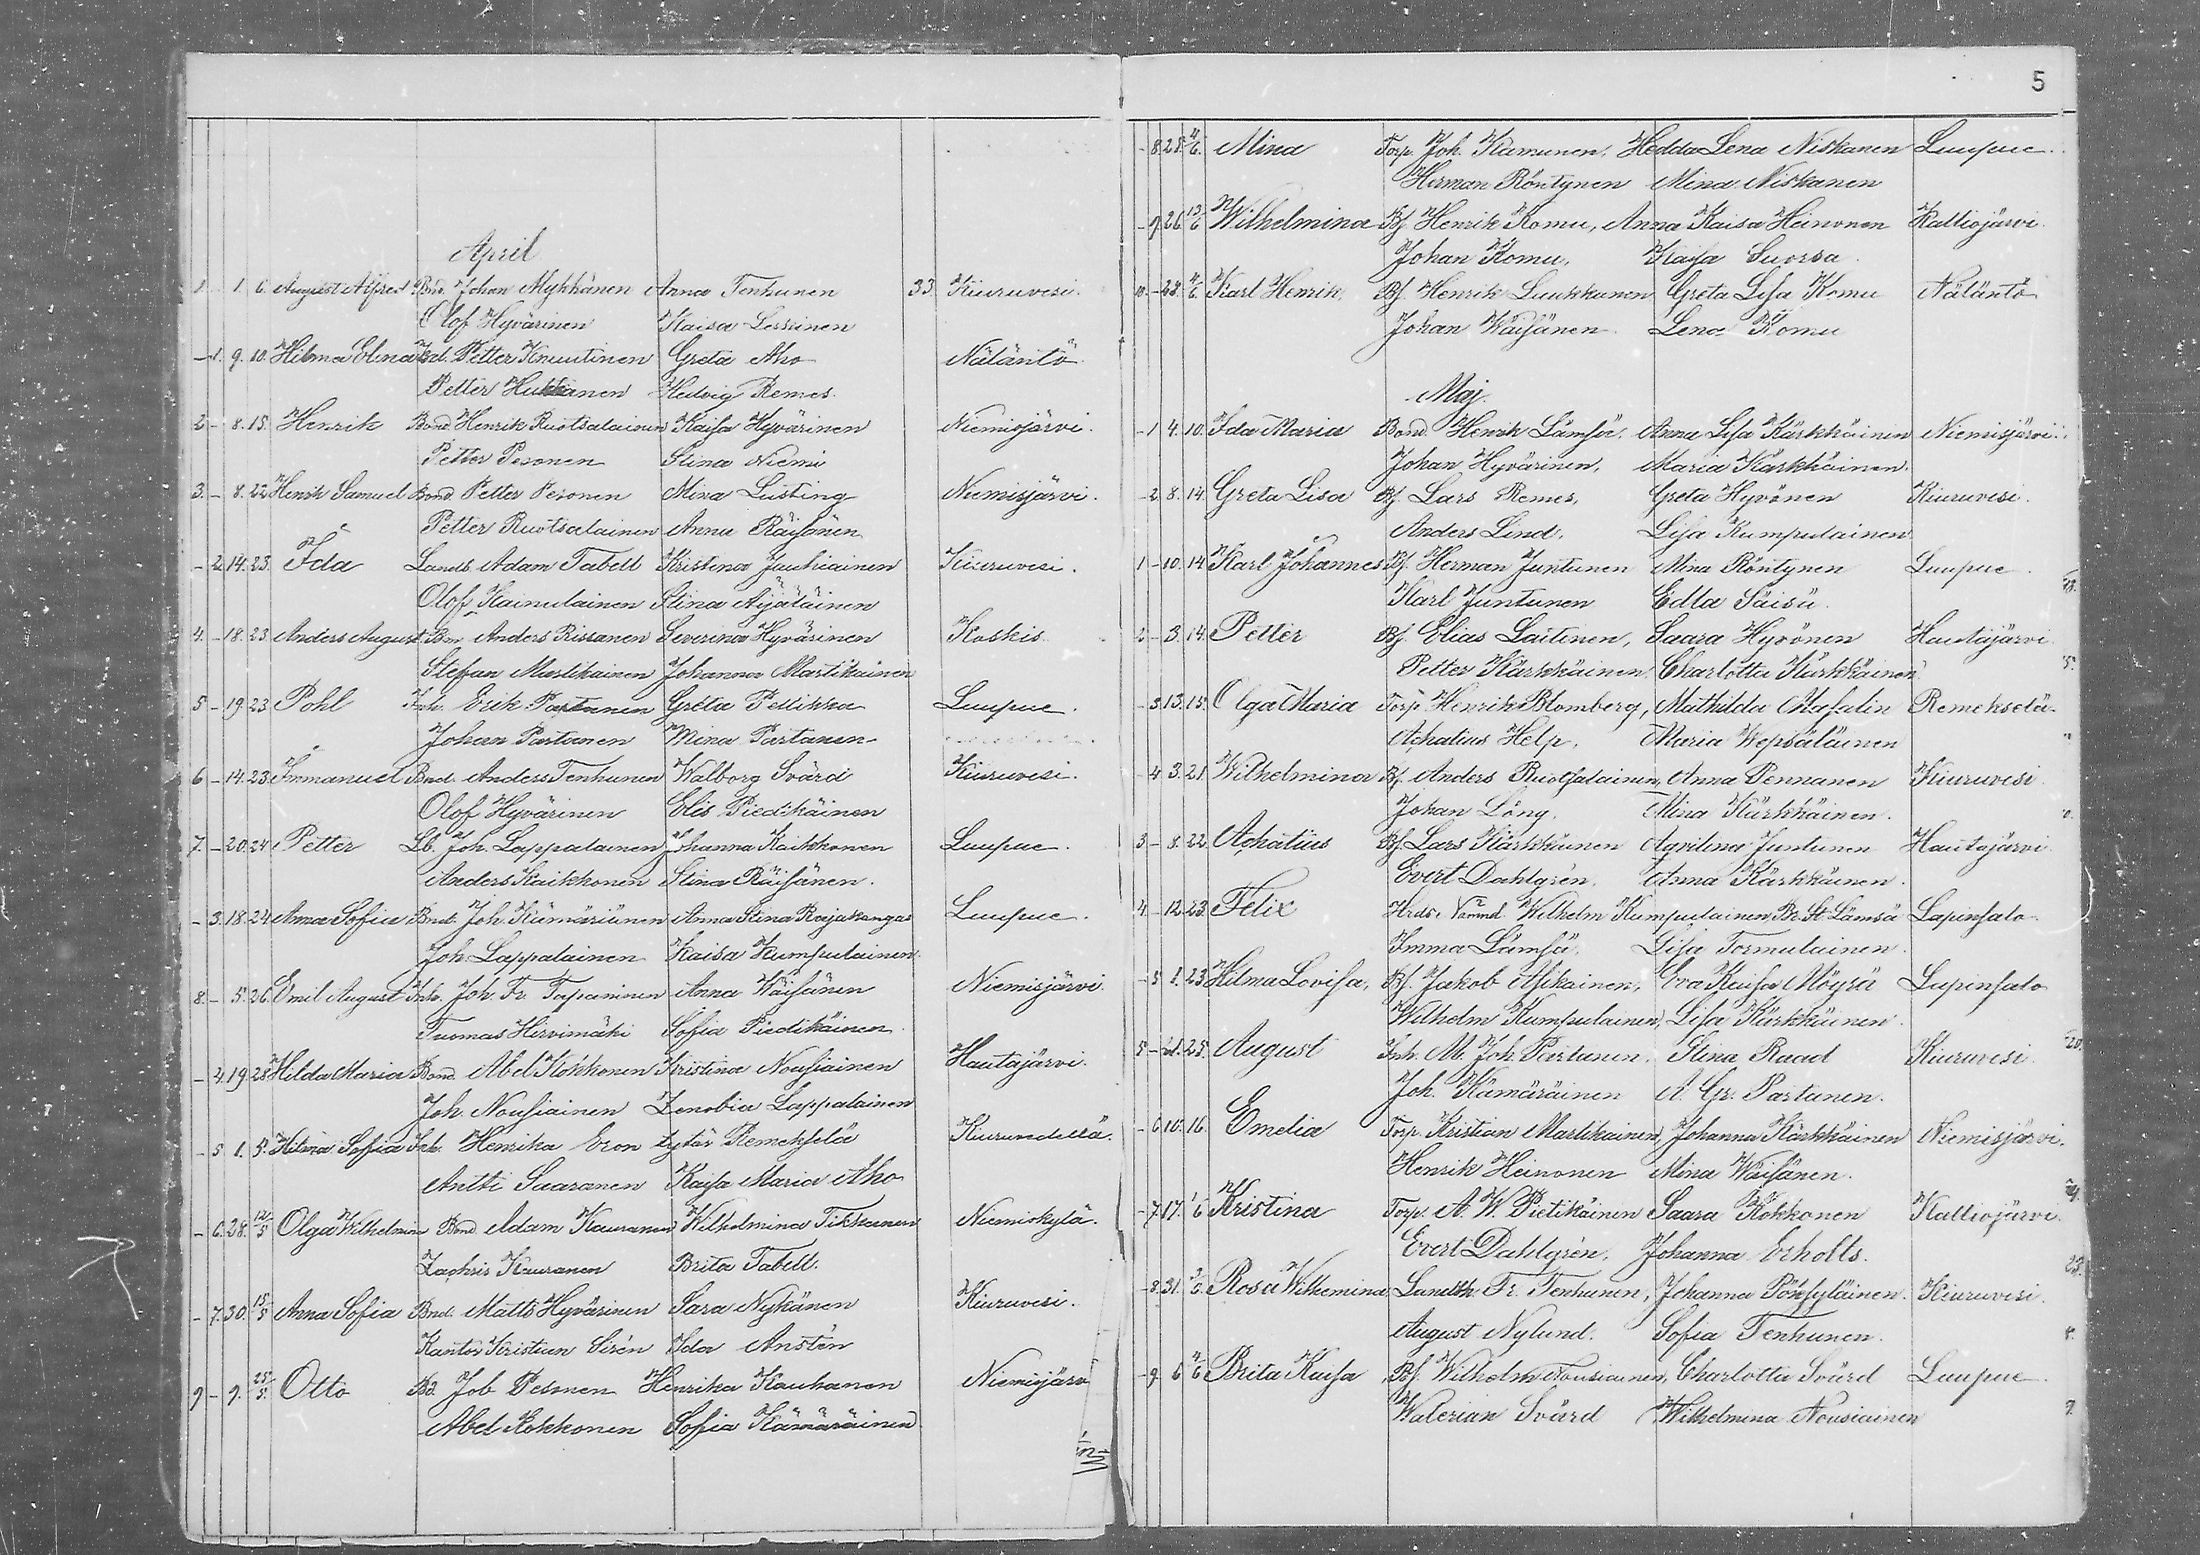 April
1 1 6 August Alfred Bnd. Johan Mykkänen Anna Tenhunen 33 Kiuruvesi.
Olof Hyvärinen Kaisa Leskinen
-1. 9. 10. Hilma Elina Petter Knuutinen Greta Aho Näläntö
Petter Hukkanen Hedvig Remes.
2 - 8. 15. Henrik Bond Henrik Ruotsalainen Kaisa Hyvärinen Niemisjärvi.
Petter Pesonen Stina Niemi
3. - 8. 22 Henrik Samuel Bond Petter Pesonen Mina Lusting Niemisjärvi.
Petter Ruotsalainen Anna Räisänen
- 2. 14. 23. Ida Lands. Adam Tabell Kristina Jauhiainen Kiuruvesi.
Olof Kainulainen Stina Äijäläinen
4. - 18. 23 Anders August Bnr Anders Rissanen Severina Hyvärinen Koskis
Stefan Martikainen Johanna Martikainen
5 - 19. 23 Pohl Inh. Erik Partanen Greta Pellikka Luupue.
Johan Partanen Mina Partanen
6 - 14. 23. Immanuel Bnd. Anders Tenhunen Walborg Svärd Kiuruvesi.
Olof Hyvärinen Elis Piedikäinen
7. - 20. 24 Petter Lb. Joh. Lappalainen Johanna Kaikkonen Luupue.
Anders Kaikkonen Stina Räisänen.
- 3. 18. 24 Anna Sofia Bnd. Joh. Kämäräinen Anna Stina Rajakangas Luupue.
Joh. Lappalainen Kaisa Kumpulainen.
8. - 5. 26. Emil August Inh. Joh. Fr. Tapaninen Anna Wäisänen Niemisjärvi.
Tuomas Hirvimäki Sofia Piedikäinen.
- 4. 19. 28 Hilda Maria Bond. Abel Kokkonen Kristina Nousiainen Hautajärvi.
Joh. Nousiainen Zenobia Lappalainen
- 5 1. Hilma Sofia Inh. Henrika Eron tytär Remekselä
Antti Saaranen Kaisa Maria Aho
- 6. 28. 12/5 Olga Wilhelmina Bond. Adam Kauranen Wilhelmina Tikkanen Niemiskylä.
Zachris Kauranen Brita Tabell.
- 7. 30. 15/5 Anna Sofia Bnd. Matts Hyvärinen Sara Nykänen Kiuruvesi.
Kantor Kristian Sirén Ida Anstén
9 - 9. 25/5 Otto Bd. Job Pesonen Henrika Kauhanen Niemisjärv
Abel Kokkonen Sofia Kämäräinen
5
- 8. 25. 4/6. Mina Torp. Joh. Kamunen, Hedda Lena Niskanen Luupue.
Herman Röntynen Mina Niskanen
- 9. 26. 13/6 Wilhelmina Bf. Henrik Komu, Anna Kaisa Heinonen Kalliojärvi.
Johan Komu, Kaisa Suorsa.
10 - 28. 4/6. Karl Henrik, Bf. Henrik Luukkunen Greta Lisa Komu Näläntö
Johan Wäisänen Lena Komu
Maj.
- 1 4. 10. Ida Maria Bond. Henrik Lämsä, Anna Lisa Kärkkäinen Niemisjärvi.
Johan Hyvärinen, Maria Kärkkäinen.
- 2. 8. 14. Greta Lisa Bf. Lars Remes, Greta Hyvönen Kiuruvesi.
Anders Lind, Lisa Kumpulainen
1 - 10. 14 Karl Johannes Bf. Herman Juntunen Mina Röntynen Luupue.
Karl Juntunen Edla Säisä.
2 - 3. 14. Petter Bf. Elias Laitinen, Saara Hyvönen Hautajärvi
Petter Kärkkäinen Charlotta Kärkkäinen
- 3. 13. 15. Olga Maria Torp. Henrik Blomberg, Mathilda Masalin Remekselä.
Achatius Help, Maria Wepsäläinen
- 4. 3. 21. Wilhelmina Bf. Anders Ruotsalainen, Anna Pennanen Kiuruvesi
Johan Löng, Mina Kärkkäinen.
3 - 8. 22. Achatius Bf. Lars Kärkkäinen Agrilina Juntunen Hautajärvi.
Evert Dahlgrén, Anna Kärkkäinen.
4 - 12. 23. Felix Wilhelm Kumpulainen, Br. St. Lämsä Lapinsalo
Imma Lämsä, Lisa Tormulainen.
- 5 1. 23. Hilma Lovisa, Bf. Jakob Asikainen, Eva Kaisa Möyrä Lapinsalo
Wilhelm Kumpulainen, Lisa Kärkkäinen.
5 - 21. 25. August Inh. M. Joh. Partanen, Stina Raad Kiuruvesi.
Joh. Kämäräinen A. Gr. Partanen.
- 6. 10. 16. Emelia Torp. Kristian Martikainen, Johanna Kärkkäinen Niemisjärvi.
Henrik Heinonen Mina Wäisänen.
- 7. 17. 1/6 Kristina Torp. A. W. Pietikäinen Saara Kokkonen Kalliojärvi.
Evert Dahlgrén, Johanna Erholts.
- 8. 31. Rosa Wilhemina Landth. Fr. Tenhunen, Johanna Pöksyläinen. Kiuruvesi.
August Nylund. Sofia Tenhunen.
- 9 6 4/6 Brita Kaisa Bf. Wilhelm Nousiainen, Charlotta Svärd Luupue.
Walerian Svärd Wilhelmina Nousiainen